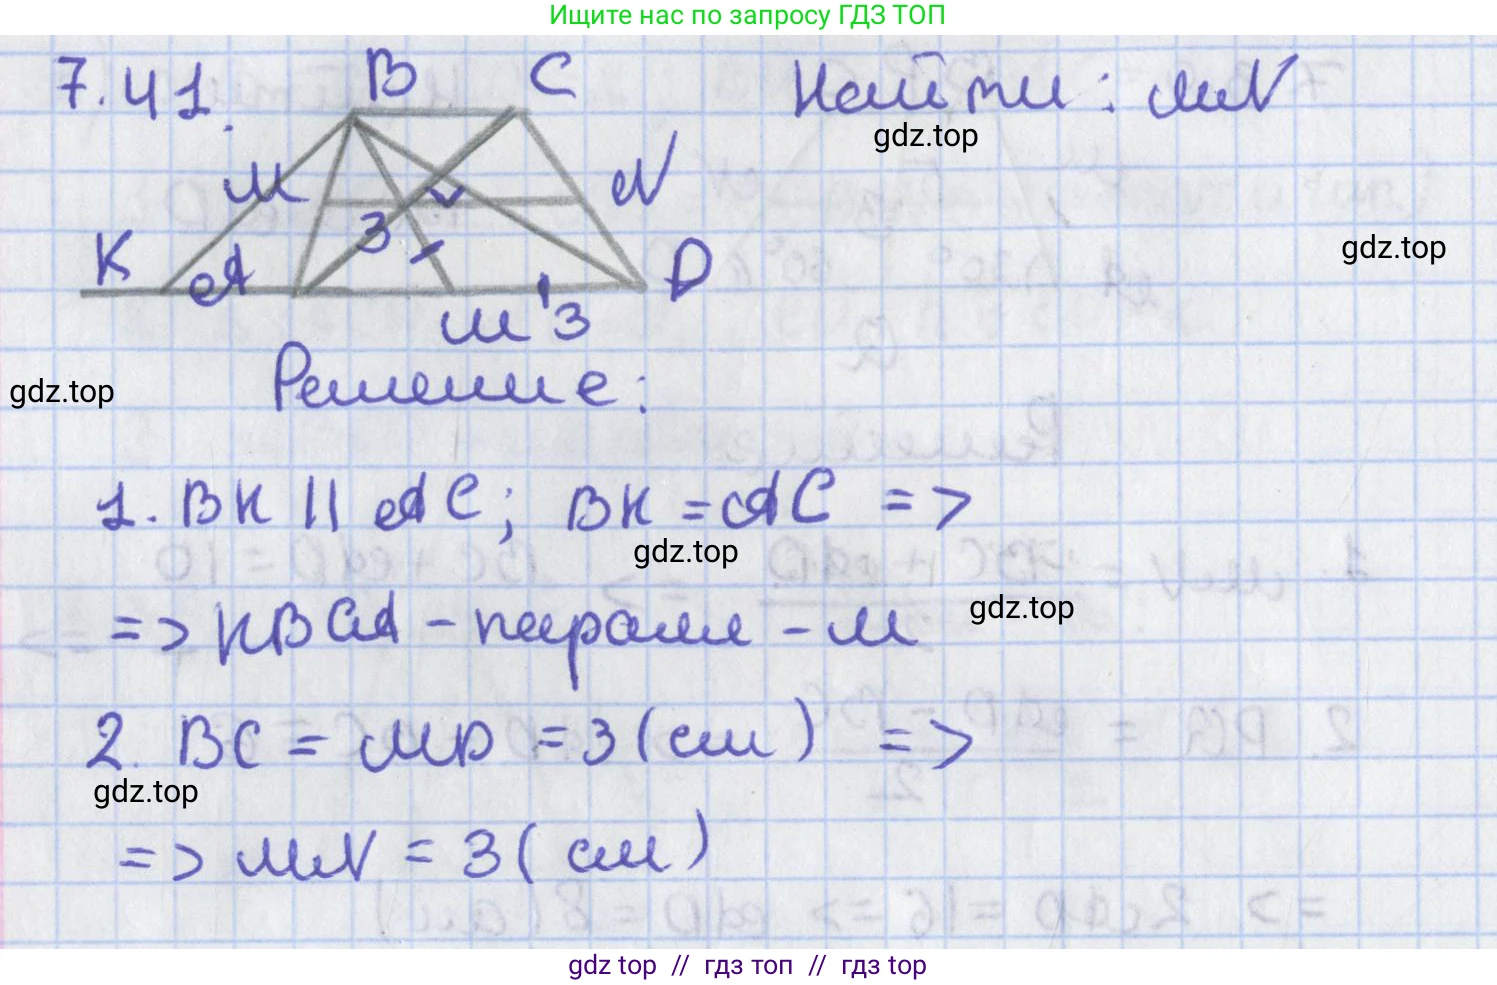 Ищите нас по запросу ГДЗ ТОП
7.41.
B C
Найти: MN
gdz.top
M N
K A 3 D
M 3
gdz.top
gdz.top
Решение:
1. BK || AC; BK = AC =>
gdz.top
=> KBCA - парал - м
gdz.top
2. BC = MD = 3 (см) =>
gdz.top
=> MN = 3 (см)
gdz top // гдз топ // гдз top